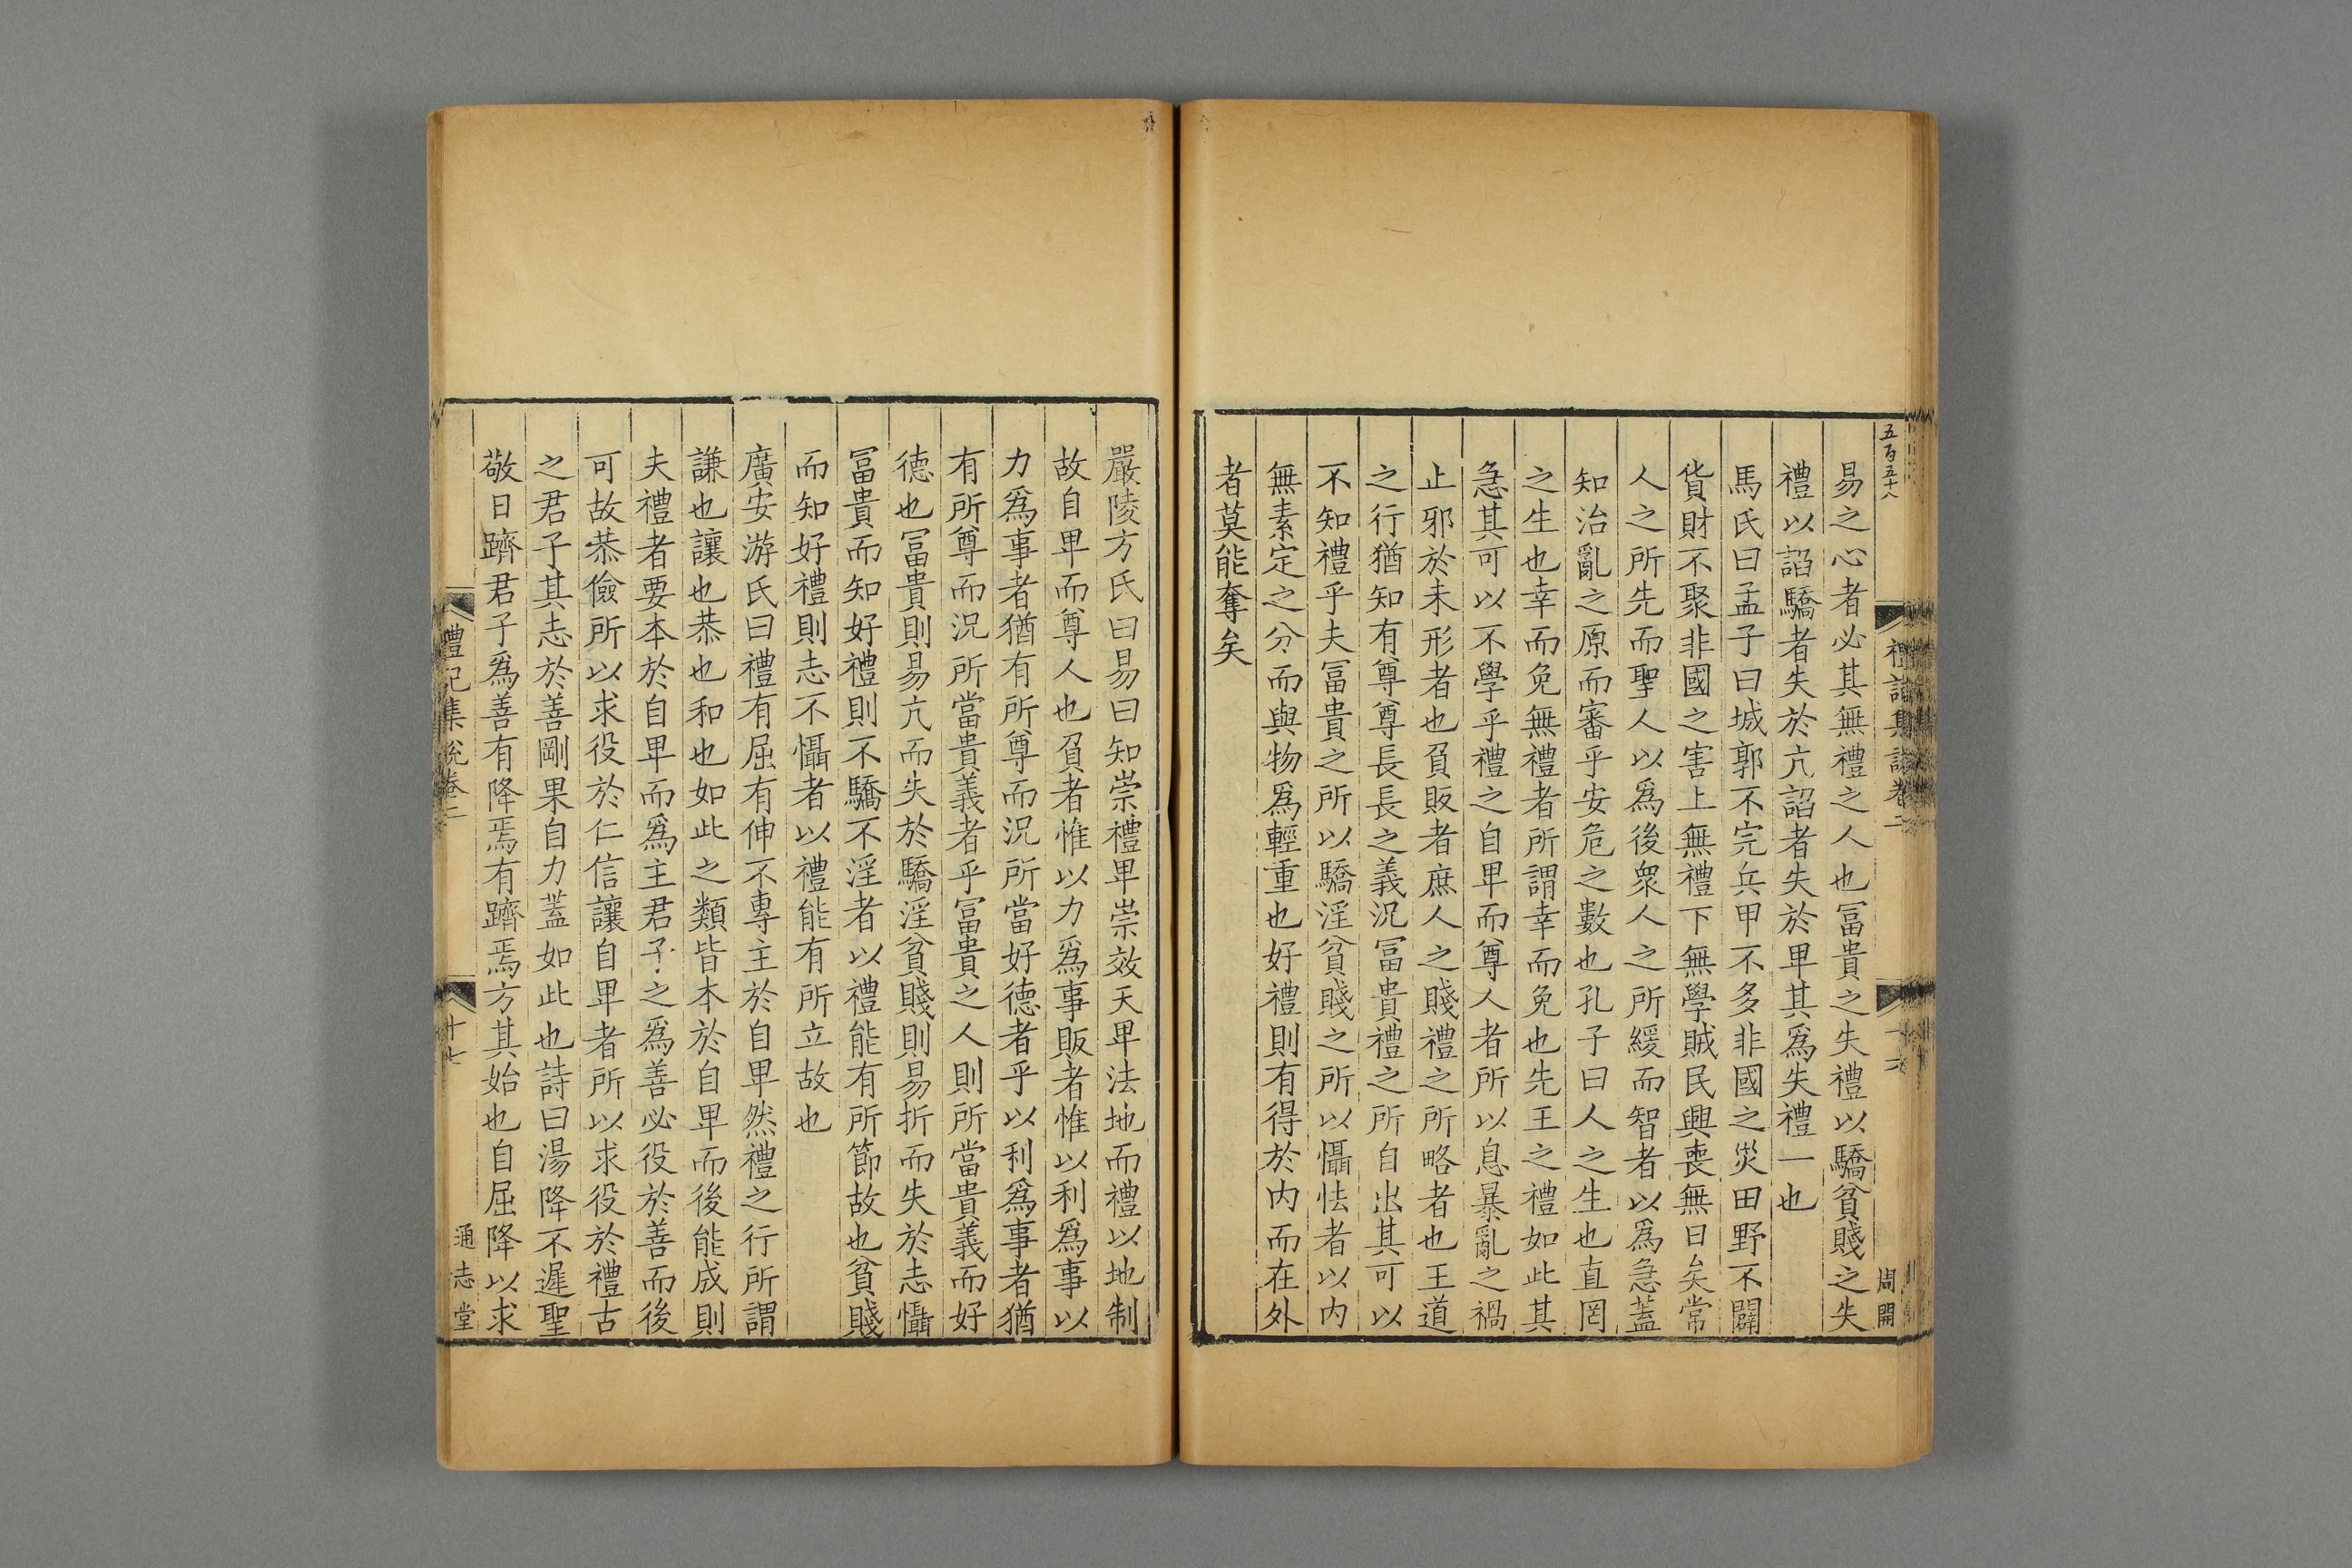 五百五十八
禮記集說卷二
十六
周開
易之心者必其無禮之人也冨貴之失禮以驕貧賤之失
禮以謟驕者失於亢謟者失於卑其爲失禮一也
馬氏曰孟子曰城郭不完兵甲不多非國之災田野不闢
貨財不聚非國之害上無禮下無學賊民興喪無日矣常
人之所先而聖人以爲後衆人之所緩而智者以爲急蓋
知治亂之原而審乎安危之數也孔子曰人之生也直罔
之生也幸而免無禮者所謂幸而免也先王之禮如此其
急其可以不學乎禮之自卑而尊人者所以息暴亂之禍
止邪於未形者也負販者庶人之賤禮之所略者也王道
之行猶知有尊尊長長之義況冨貴禮之所自出其可以
不知禮乎夫冨貴之所以驕淫貧賤之所以懾怯者以内
無素定之分而與物爲輕重也好禮則有得於内而在外
者莫能奪矣
嚴陵方氏曰易曰知崇禮卑崇效天卑法地而禮以地制
故自卑而尊人也負者惟以力爲事販者惟以利爲事以
力爲事者猶有所尊而況所當好德者乎以利爲事者猶
有所尊而況所當貴義者乎冨貴之人則所當貴義而好
德也冨貴則易亢而失於驕淫貧賤則易折而失於志懾
冨貴而知好禮則不驕不淫者以禮能有所節故也貧賤
而知好禮則志不懾者以禮能有所立故也
廣安游氏曰禮有屈有伸不專主於自卑然禮之行所謂
謙也讓也恭也和也如此之類皆本於自卑而後能成則
夫禮者要本於自卑而爲主君子之爲善必役於善而後
可故恭儉所以求役於仁信讓自卑者所以求役於禮古
之君子其志於善剛果自力蓋如此也詩曰湯降不遲聖
敬日躋君子爲善有降焉有躋焉方其始也自屈降以求
禮記集說卷二
十七
通志堂